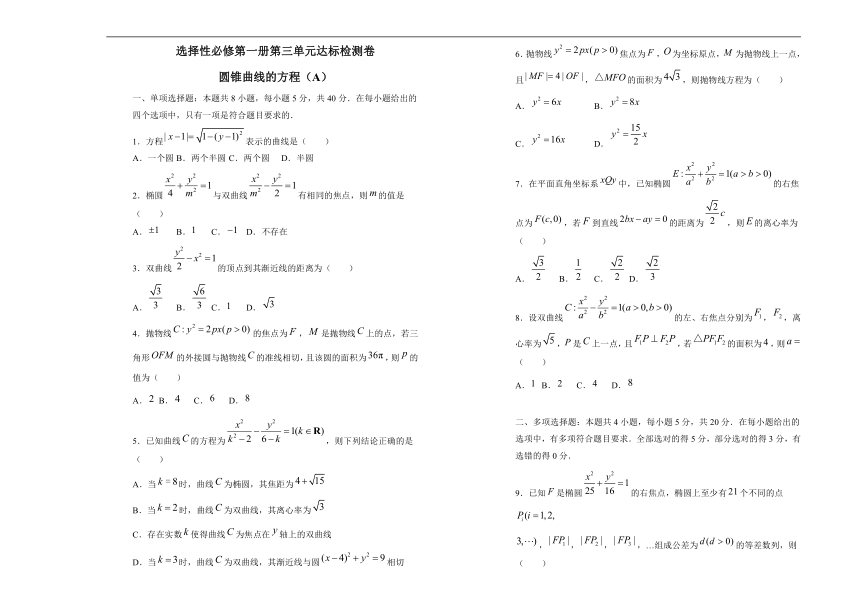 选择性必修第一册第三单元达标检测卷
圆锥曲线的方程（A）
一、单项选择题：本题共8小题，每小题5分，共40分．在每小题给出的
四个选项中，只有一项是符合题目要求的．
1．方程|x－1|=√(1－(y－1)²)表示的曲线是（ ）
A．一个圆 B．两个半圆 C．两个圆 D．半圆
2．椭圆x²/4+y²/m²=1与双曲线x²/m²－y²/2=1有相同的焦点，则m的值是
（ ）
A．±1 B．1 C．－1 D．不存在
3．双曲线y²/2－x²=1的顶点到其渐近线的距离为（ ）
A．√3/3 B．√6/3 C．1 D．√3
4．抛物线C:y²=2px(p>0)的焦点为F，M是抛物线C上的点，若三
角形OFM的外接圆与抛物线C的准线相切，且该圆的面积为36π，则p的
值为（ ）
A．2 B．4 C．6 D．8
5．已知曲线C的方程为x²/(k²－2)－y²/(6－k)=1(k∈R)，则下列结论正确的是
（ ）
A．当k=8时，曲线C为椭圆，其焦距为4+√15
B．当k=2时，曲线C为双曲线，其离心率为√3
C．存在实数k使得曲线C为焦点在y轴上的双曲线
D．当k=3时，曲线C为双曲线，其渐近线与圆(x－4)²+y²=9相切
6．抛物线y²=2px(p>0)焦点为F，O为坐标原点，M为抛物线上一点，
且|MF|=4|OF|，△MFO的面积为4√3，则抛物线方程为（ ）
A．y²=6x B．y²=8x
C．y²=16x D．y²=15/2x
7．在平面直角坐标系xOy中，已知椭圆E:x²/a²+y²/b²=1(a>b>0)的右焦
点为F(c,0)，若F到直线2bx－ay=0的距离为√2/2c，则E的离心率为
（ ）
A．√3/2 B．1/2 C．√2/2 D．√2/3
8．设双曲线C:x²/a²－y²/b²=1(a>0,b>0)的左、右焦点分别为F₁，F₂，离
心率为√5，P是C上一点，且F₁P⊥F₂P，若△PF₁F₂的面积为4，则a=
（ ）
A．1 B．2 C．4 D．8
二、多项选择题：本题共4小题，每小题5分，共20分．在每小题给出的
选项中，有多项符合题目要求．全部选对的得5分，部分选对的得3分，有
选错的得0分．
9．已知F是椭圆x²/25+y²/16=1的右焦点，椭圆上至少有21个不同的点
Pᵢ(i=1,2,
3,⋯)，|FP₁|，|FP₂|，|FP₃|，…组成公差为d(d>0)的等差数列，则
（ ）